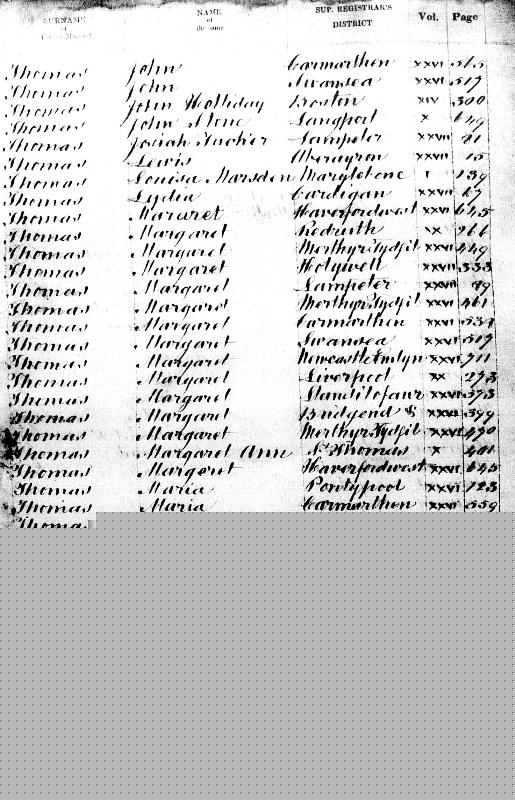 SURNAME of Person Married NAME of the same SUP. REGISTRAR'S DISTRICT Vol. Page
Thomas John Carmarthen xxvi 515
Thomas John Swansea xxvi 517
Thomas John Holliday Boston xiv 300
Thomas John Stone Langport x 649
Thomas Josiah Tucker Lampeter xxvii
Thomas Lewis Aberayron xxvii 15
Thomas Louisa Marsden Marylebone 1 139
Thomas Lydia Cardigan xxvii 67
Thomas Margret Haverfordwest xxvi 645
Thomas Margaret Redruth ix 266
Thomas Margaret Merthyr Tydfil xxvi 449
Thomas Margaret Holywell xxvii 333
Thomas Margaret Lampeter xxvii 89
Thomas Margaret Merthyr Tydfil xxvi 461
Thomas Margaret Carmarthen xxvi 537
Thomas Margaret Swansea xxvi 517
Thomas Margaret Newcastle Emlyn xxvi 711
Thomas Margaret Liverpool xx 273
Thomas Margaret Llandilofaur xxvi 573
Thomas Margaret Bridgend & xxvi 399
Thomas Margaret Merthyr Tydfil xxvi 470
Thomas Margaret Ann St Thomas x 401
Thomas Margeret Haverfordwest xxvi 645
Thomas Maria Pontypool xxvi 123
Thomas Maria Carmarthen xxvi 559
Thomas